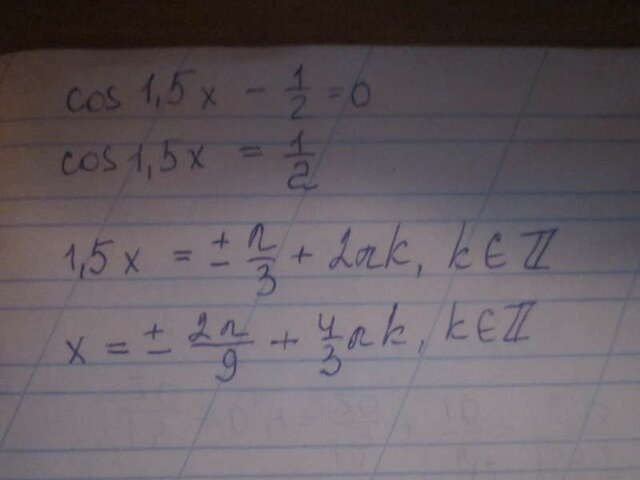 cos 1,5x - 1/2 = 0
cos 1,5x = 1/2
1,5x = ± π/3 + 2πk, k ∈ ℤ
x = ± 2π/9 + 4/3 πk, k ∈ ℤ